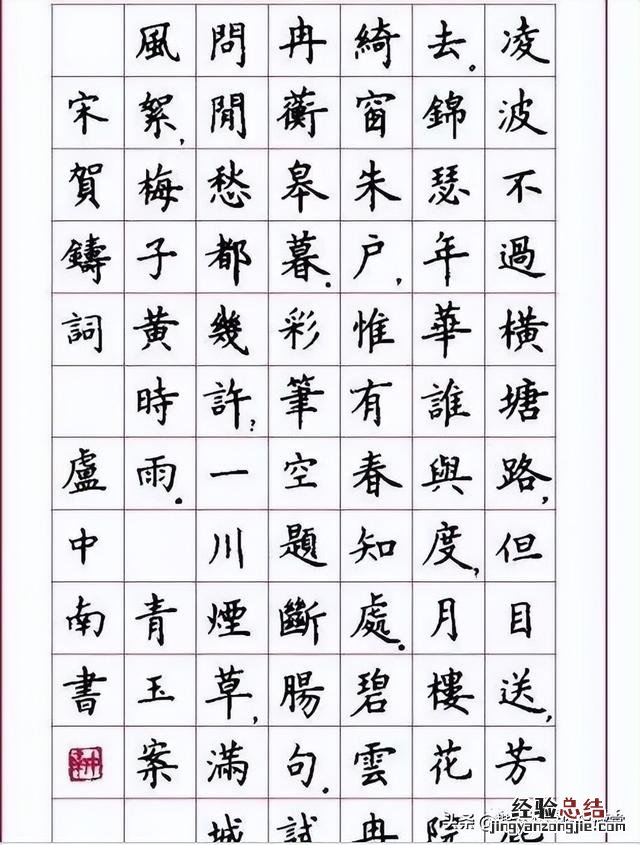 凌波不過橫塘路，但目送，芳
去。錦瑟年華誰與度，月樓花院
綺窗朱戶，惟有春知處。碧雲冉
冉蘅皋暮。彩筆空題斷腸句。試
問閒愁都幾許？一川煙草，滿城
風絮，梅子黃時雨。 青玉案
宋賀鑄詞 盧中南書
头条
经验总结
jingyanzongjie.com